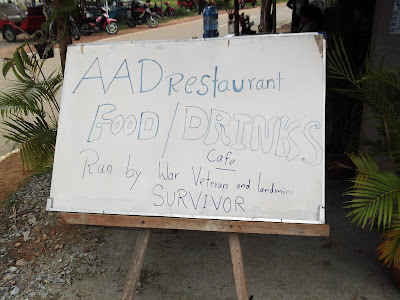 AAD Restaurant
FOOD / DRINKS
Cafe
Run by War Veteran and landmine
SURVIVOR